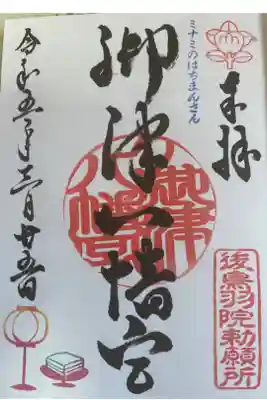 奉拝
後鳥羽院勅願所
ミナミのはちまんさん
御津八幡宮
御津
八幡宮
令和五年三月廿五日